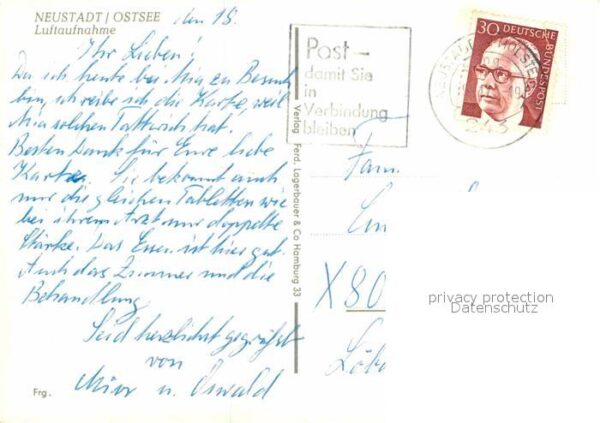 NEUSTADT / OSTSEE
Luftaufnahme
den 18.
Ihr Lieben!
Da ich heute bei Mia zu Besuch
bin, schreibe ich die Karte, weil
Mia solchen Tatterich hat.
Besten Dank für Eure liebe
Karte. Sie bekommt auch
nur die gleichen Tabletten wie
bei ihrem Arzt nur doppelte
Stärke. Das Essen ist hier gut.
Auch das Zimmer und die
Behandlung.
Seid herzlichst gegrüßt
von
u. Oswald
Frg.
Verlag Ferd. Lagerbauer & Co Hamburg 33
Post-
damit Sie
in
Verbindung
bleiben
30
DEUTSCHE
BUNDESPOST
243
Fam.
X 80
privacy protection
Datenschutz